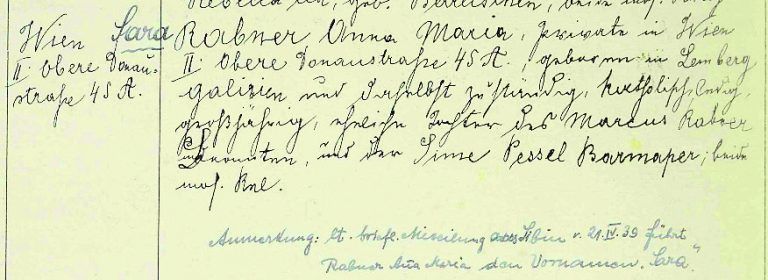 Rebecca geb. beide mos.
Wien Sara
II. Obere Donau-
straße 45 A.
Rabner Anna Maria, Private in Wien
II. Obere Donaustraße 45 A. geboren in Lemberg
Galizien und daselbst zuständig, katholisch, ledig,
großjährig, eheliche Tochter des Marcus Rabner
Beamten, und der Sime Pessel Barmaper; beide
mos. Rel.
Anmerkung: lt. briefl. Mitteilung v. 21.IV.39 führt
Rabner Anna Maria den Vornamen „Sara“